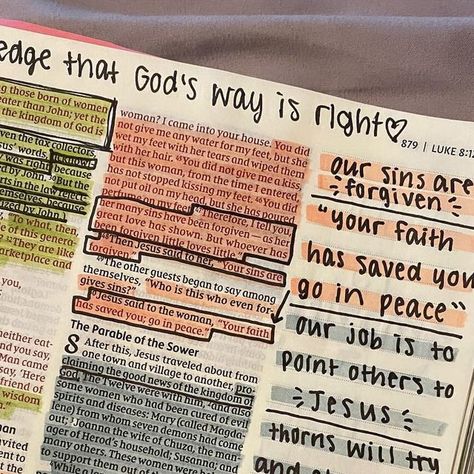 edge that God's way is right♡
879 | LUKE 8:1
ng those born of women
eater than John; yet the
the kingdom of God is
ven the tax collectors,
sus' words,
y was right, because
arts in the law
ejected God's
themselves, because
zed by John.
To what, then,
e of this genera-
They are like
arketplace and
you,
either eat-
nd you say,
Man came
say, 'Here
friend of
wisdom
vited
nt to
woman? I came into your house. You did
not give me any water for my feet, but she
wet my feet with her tears and wiped them
with her hair. 45 You did not give me a kiss,
but this woman, from the time I entered,
has not stopped kissing my feet. 46 You did
not put oil on my head, but she has poured
on my feet. 47 Therefore, I tell you,
her many sins have been forgiven—as her
great love has shown. But whoever has
been forgiven little loves little."
48 Then Jesus said to her, "Your sins are
forgiven."
49 The other guests began to say among
themselves, "Who is this who even for-
gives sins?"
50 Jesus said to the woman, "Your faith
has saved you; go in peace."
The Parable of the Sower
8 After this, Jesus traveled about from
one town and village to another, pro-
claiming the good news of the kingdom of
God. The Twelve were with him, 2 and also
some women who had been cured of evil
spirits and diseases: Mary (called Magda-
lene) from whom seven demons had come
out; 3 Joanna the wife of Chuza, the manag-
er of Herod's household; Susanna; and
many others. These women were
to support them out of
4 While a
our sins are
forgiven
"your faith
has saved you
go in peace"
our job is to
point others to
Jesus
thorns will try
and